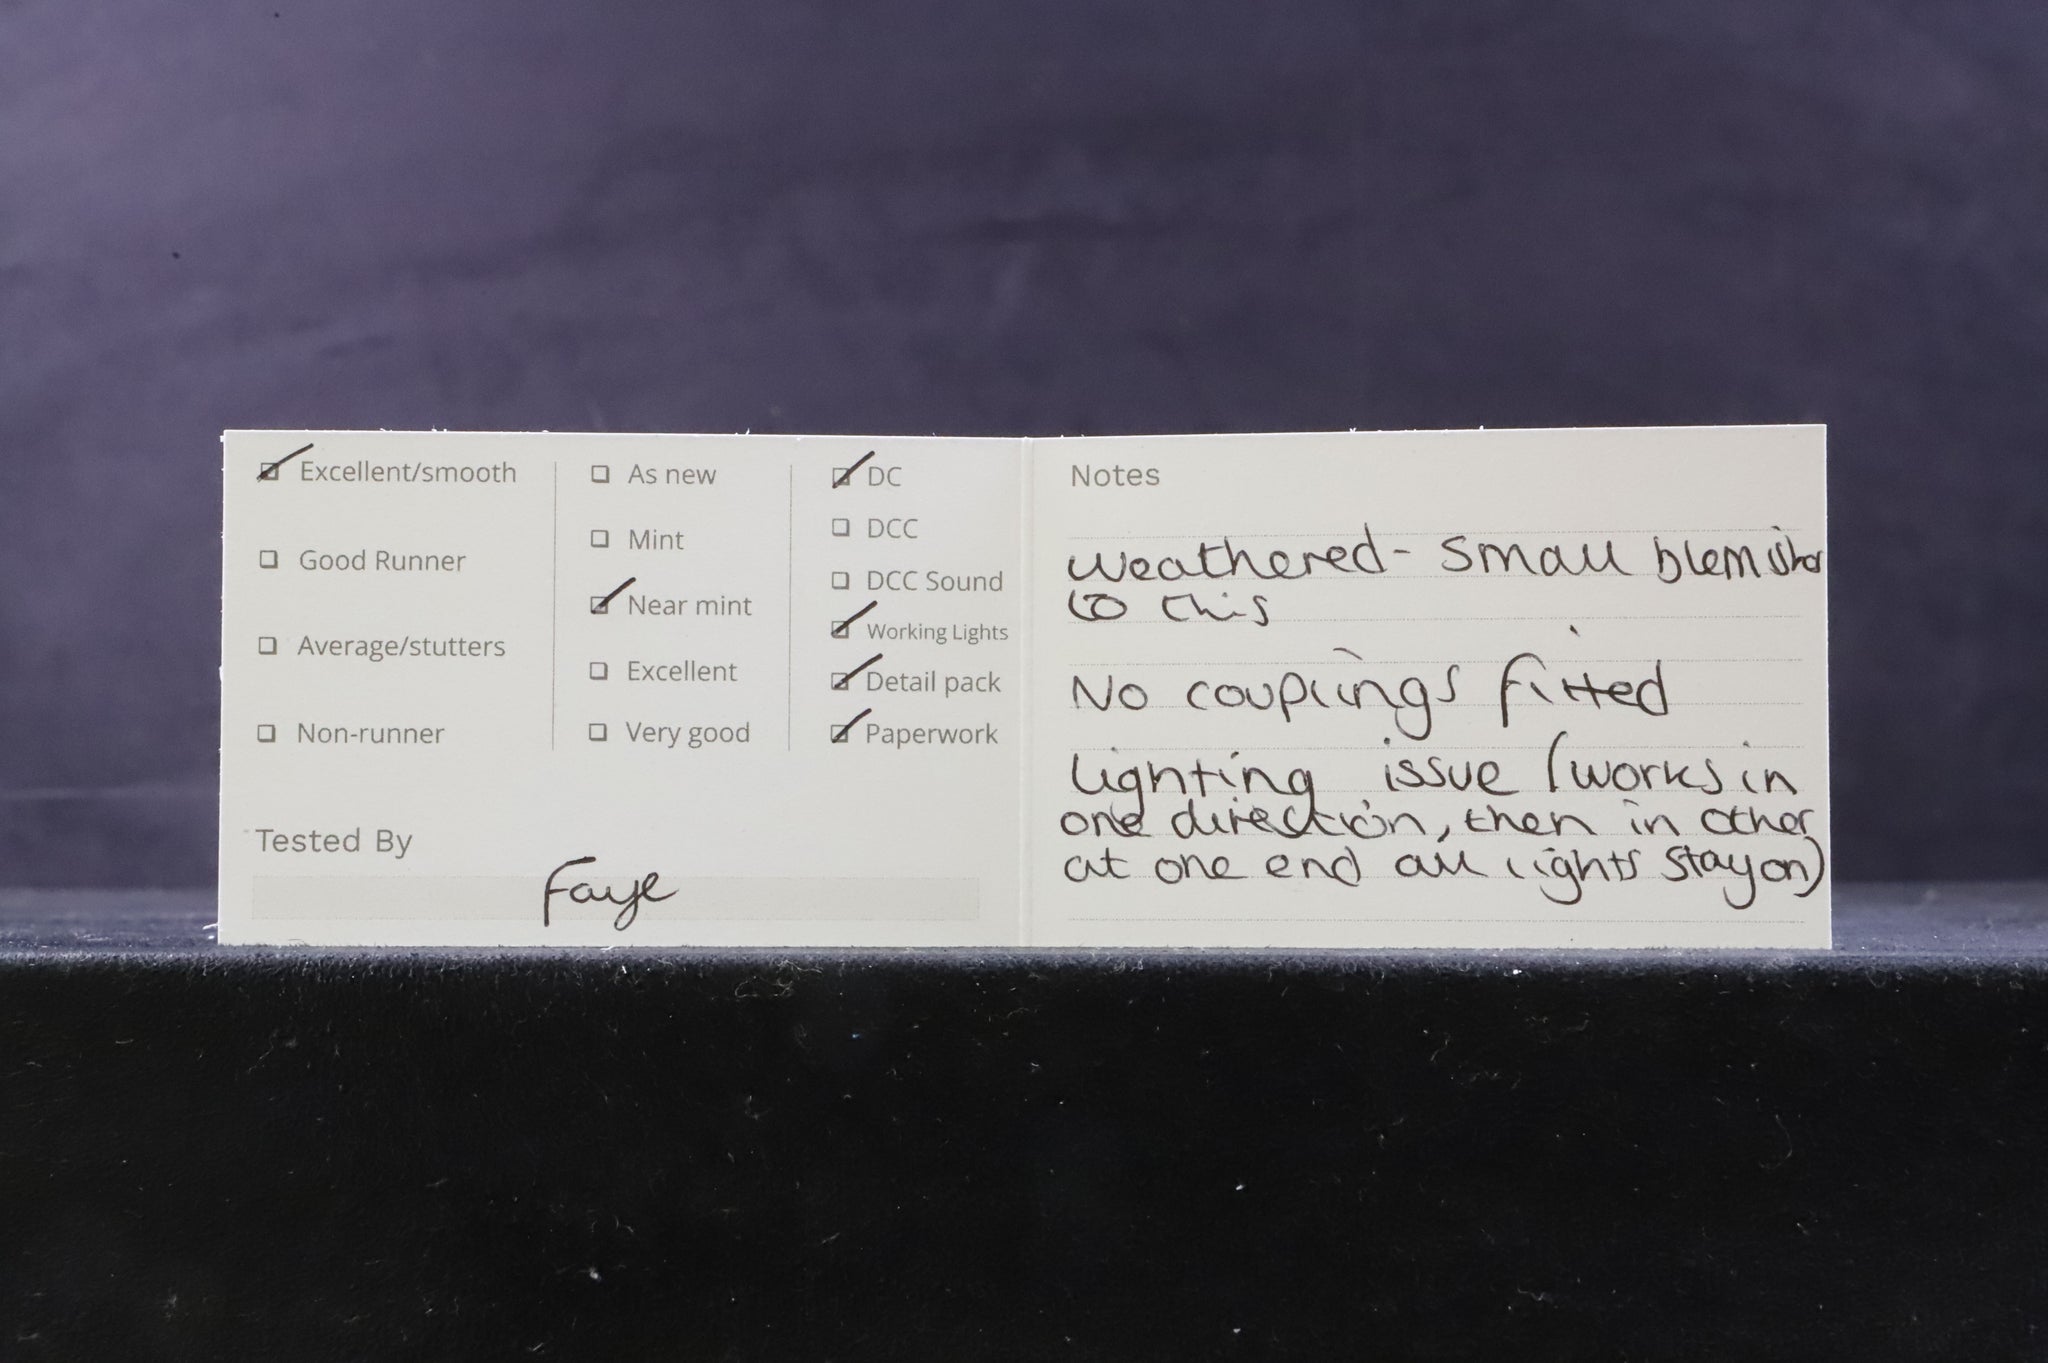 Excellent/smooth
Good Runner
Average/stutters
Non-runner
As new
Mint
Near mint
Excellent
Very good
DC
DCC
DCC Sound
Working Lights
Detail pack
Paperwork
Tested By
Faye
Notes
Weathered - small blemishes
to this
No couplings fitted
Lighting issue (works in
one direction, then in other
at one end all lights stay on)